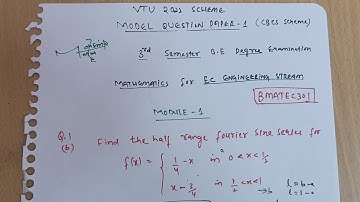 VTU 2022 SCHEME
MODEL QUESTION PAPER-1 (CBCS Scheme)
3rd Semester B.E Degree Examination
MATHEMATICS for EC ENGINEERING STREAM
BMATEC301
MODULE-1
Q.1 Find the half range fourier sine series for
(b)
f(x) = { 1/4 - x in 0 < x < 1/2
x - 3/4 in 1/2 < x < 1
l = b - a
l = 1 - 0